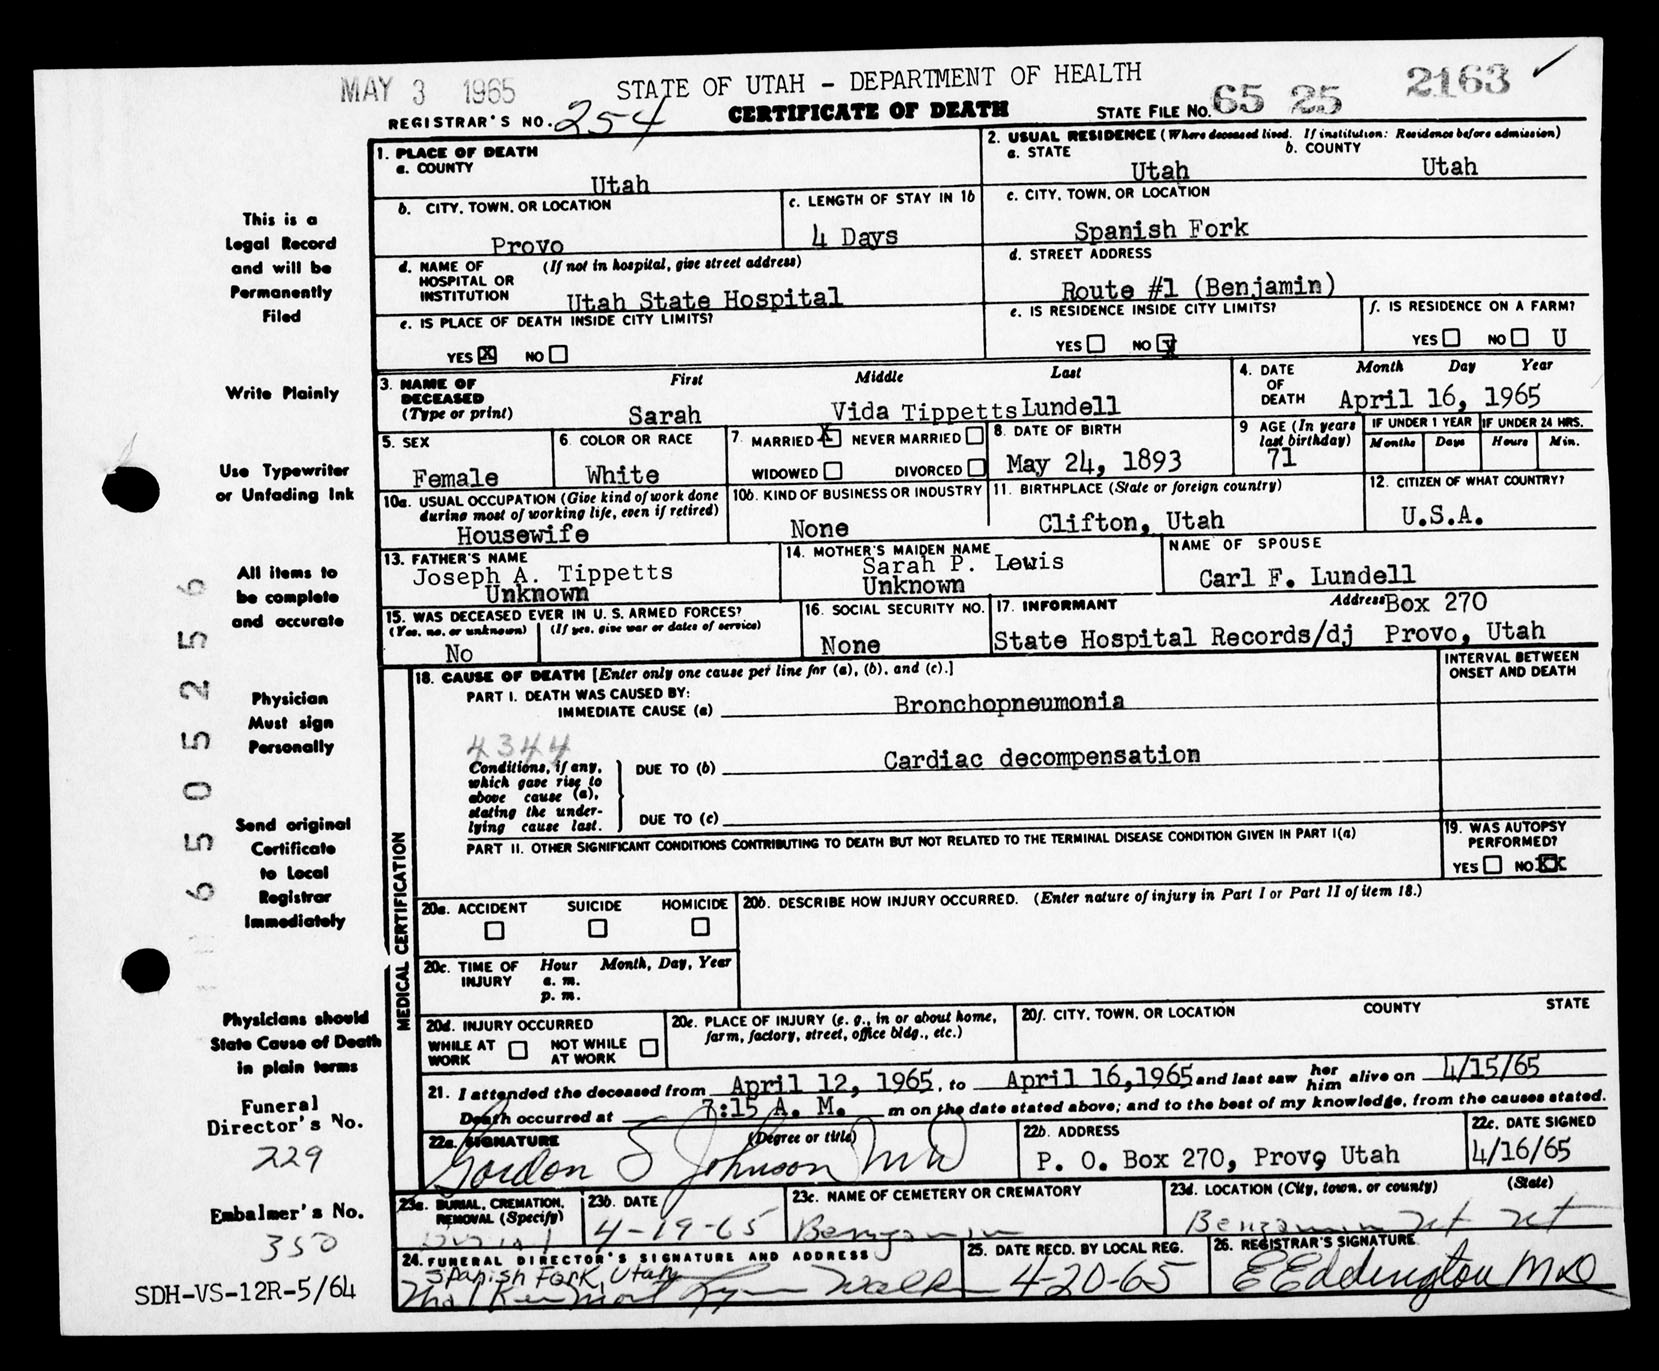 MAY 3 1965
STATE OF UTAH - DEPARTMENT OF HEALTH
2163 ✓
REGISTRAR'S NO. 254
CERTIFICATE OF DEATH
STATE FILE NO. 65 25
This is a
Legal Record
and will be
Permanently
Filed
Write Plainly
Use Typewriter
or Unfading Ink
All items to
be complete
and accurate
Physician
Must sign
Personally
Send original
Certificate
to Local
Registrar
Immediately
Physicians should
State Cause of Death
in plain terms
Funeral
Director's No.
229
Embalmer's No.
350
SDH-VS-12R-5/64
6505256
1. PLACE OF DEATH
a. COUNTY
Utah
2. USUAL RESIDENCE (Where deceased lived. If institution: Residence before admission)
a. STATE
Utah
b. COUNTY
Utah
b. CITY, TOWN, OR LOCATION
Provo
c. LENGTH OF STAY IN 1b
4 Days
c. CITY, TOWN, OR LOCATION
Spanish Fork
d. NAME OF (If not in hospital, give street address)
HOSPITAL OR
INSTITUTION Utah State Hospital
d. STREET ADDRESS
Route #1 (Benjamin)
e. IS PLACE OF DEATH INSIDE CITY LIMITS?
YES X NO
e. IS RESIDENCE INSIDE CITY LIMITS?
YES NO
f. IS RESIDENCE ON A FARM?
YES NO U
3. NAME OF
DECEASED
(Type or print)
First Middle Last
Sarah Vida Tippetts Lundell
4. DATE
OF
DEATH
Month Day Year
April 16, 1965
5. SEX
Female
6. COLOR OR RACE
White
7. MARRIED X NEVER MARRIED
WIDOWED DIVORCED
8. DATE OF BIRTH
May 24, 1893
9 AGE (In years
last birthday)
71
IF UNDER 1 YEAR
Months Days
IF UNDER 24 HRS.
Hours Min.
10a. USUAL OCCUPATION (Give kind of work done
during most of working life, even if retired)
Housewife
10b. KIND OF BUSINESS OR INDUSTRY
None
11. BIRTHPLACE (State or foreign country)
Clifton, Utah
12. CITIZEN OF WHAT COUNTRY?
U.S.A.
13. FATHER'S NAME
Joseph A. Tippetts
Unknown
14. MOTHER'S MAIDEN NAME
Sarah P. Lewis
Unknown
NAME OF SPOUSE
Carl F. Lundell
15. WAS DECEASED EVER IN U. S. ARMED FORCES?
(Yes, no, or unknown) (If yes, give war or dates of service)
No
16. SOCIAL SECURITY NO.
None
17. INFORMANT Address Box 270
State Hospital Records/dj Provo, Utah
MEDICAL CERTIFICATION
18. CAUSE OF DEATH [Enter only one cause per line for (a), (b), and (c).]
INTERVAL BETWEEN
ONSET AND DEATH
PART I. DEATH WAS CAUSED BY:
IMMEDIATE CAUSE (a) Bronchopneumonia
4344
Conditions, if any,
which gave rise to
above cause (a),
stating the under-
lying cause last.
DUE TO (b) Cardiac decompensation
DUE TO (c)
PART II. OTHER SIGNIFICANT CONDITIONS CONTRIBUTING TO DEATH BUT NOT RELATED TO THE TERMINAL DISEASE CONDITION GIVEN IN PART I(a)
19. WAS AUTOPSY
PERFORMED?
YES NO XX
20a. ACCIDENT SUICIDE HOMICIDE
20b. DESCRIBE HOW INJURY OCCURRED. (Enter nature of injury in Part I or Part II of item 18.)
20c. TIME OF
INJURY
Hour Month, Day, Year
a. m.
p. m.
20d. INJURY OCCURRED
WHILE AT
WORK
NOT WHILE
AT WORK
20e. PLACE OF INJURY (e. g., in or about home,
farm, factory, street, office bldg., etc.)
20f. CITY, TOWN, OR LOCATION COUNTY STATE
21. I attended the deceased from April 12, 1965, to April 16, 1965 and last saw her him alive on 4/15/65
Death occurred at 7:15 A. M. m on the date stated above; and to the best of my knowledge, from the causes stated.
22a. SIGNATURE (Degree or title)
Gordon S Johnson MD
22b. ADDRESS
P. O. Box 270, Provo Utah
22c. DATE SIGNED
4/16/65
23a. BURIAL, CREMATION,
REMOVAL (Specify)
Burial
23b. DATE
4-19-65
23c. NAME OF CEMETERY OR CREMATORY
Benjamin
23d. LOCATION (City, town, or county) (State)
Benjamin Ut Ut
24. FUNERAL DIRECTOR'S SIGNATURE AND ADDRESS
Spanish Fork, Utah
25. DATE RECD. BY LOCAL REG.
4-20-65
26. REGISTRAR'S SIGNATURE
E Eddington MD